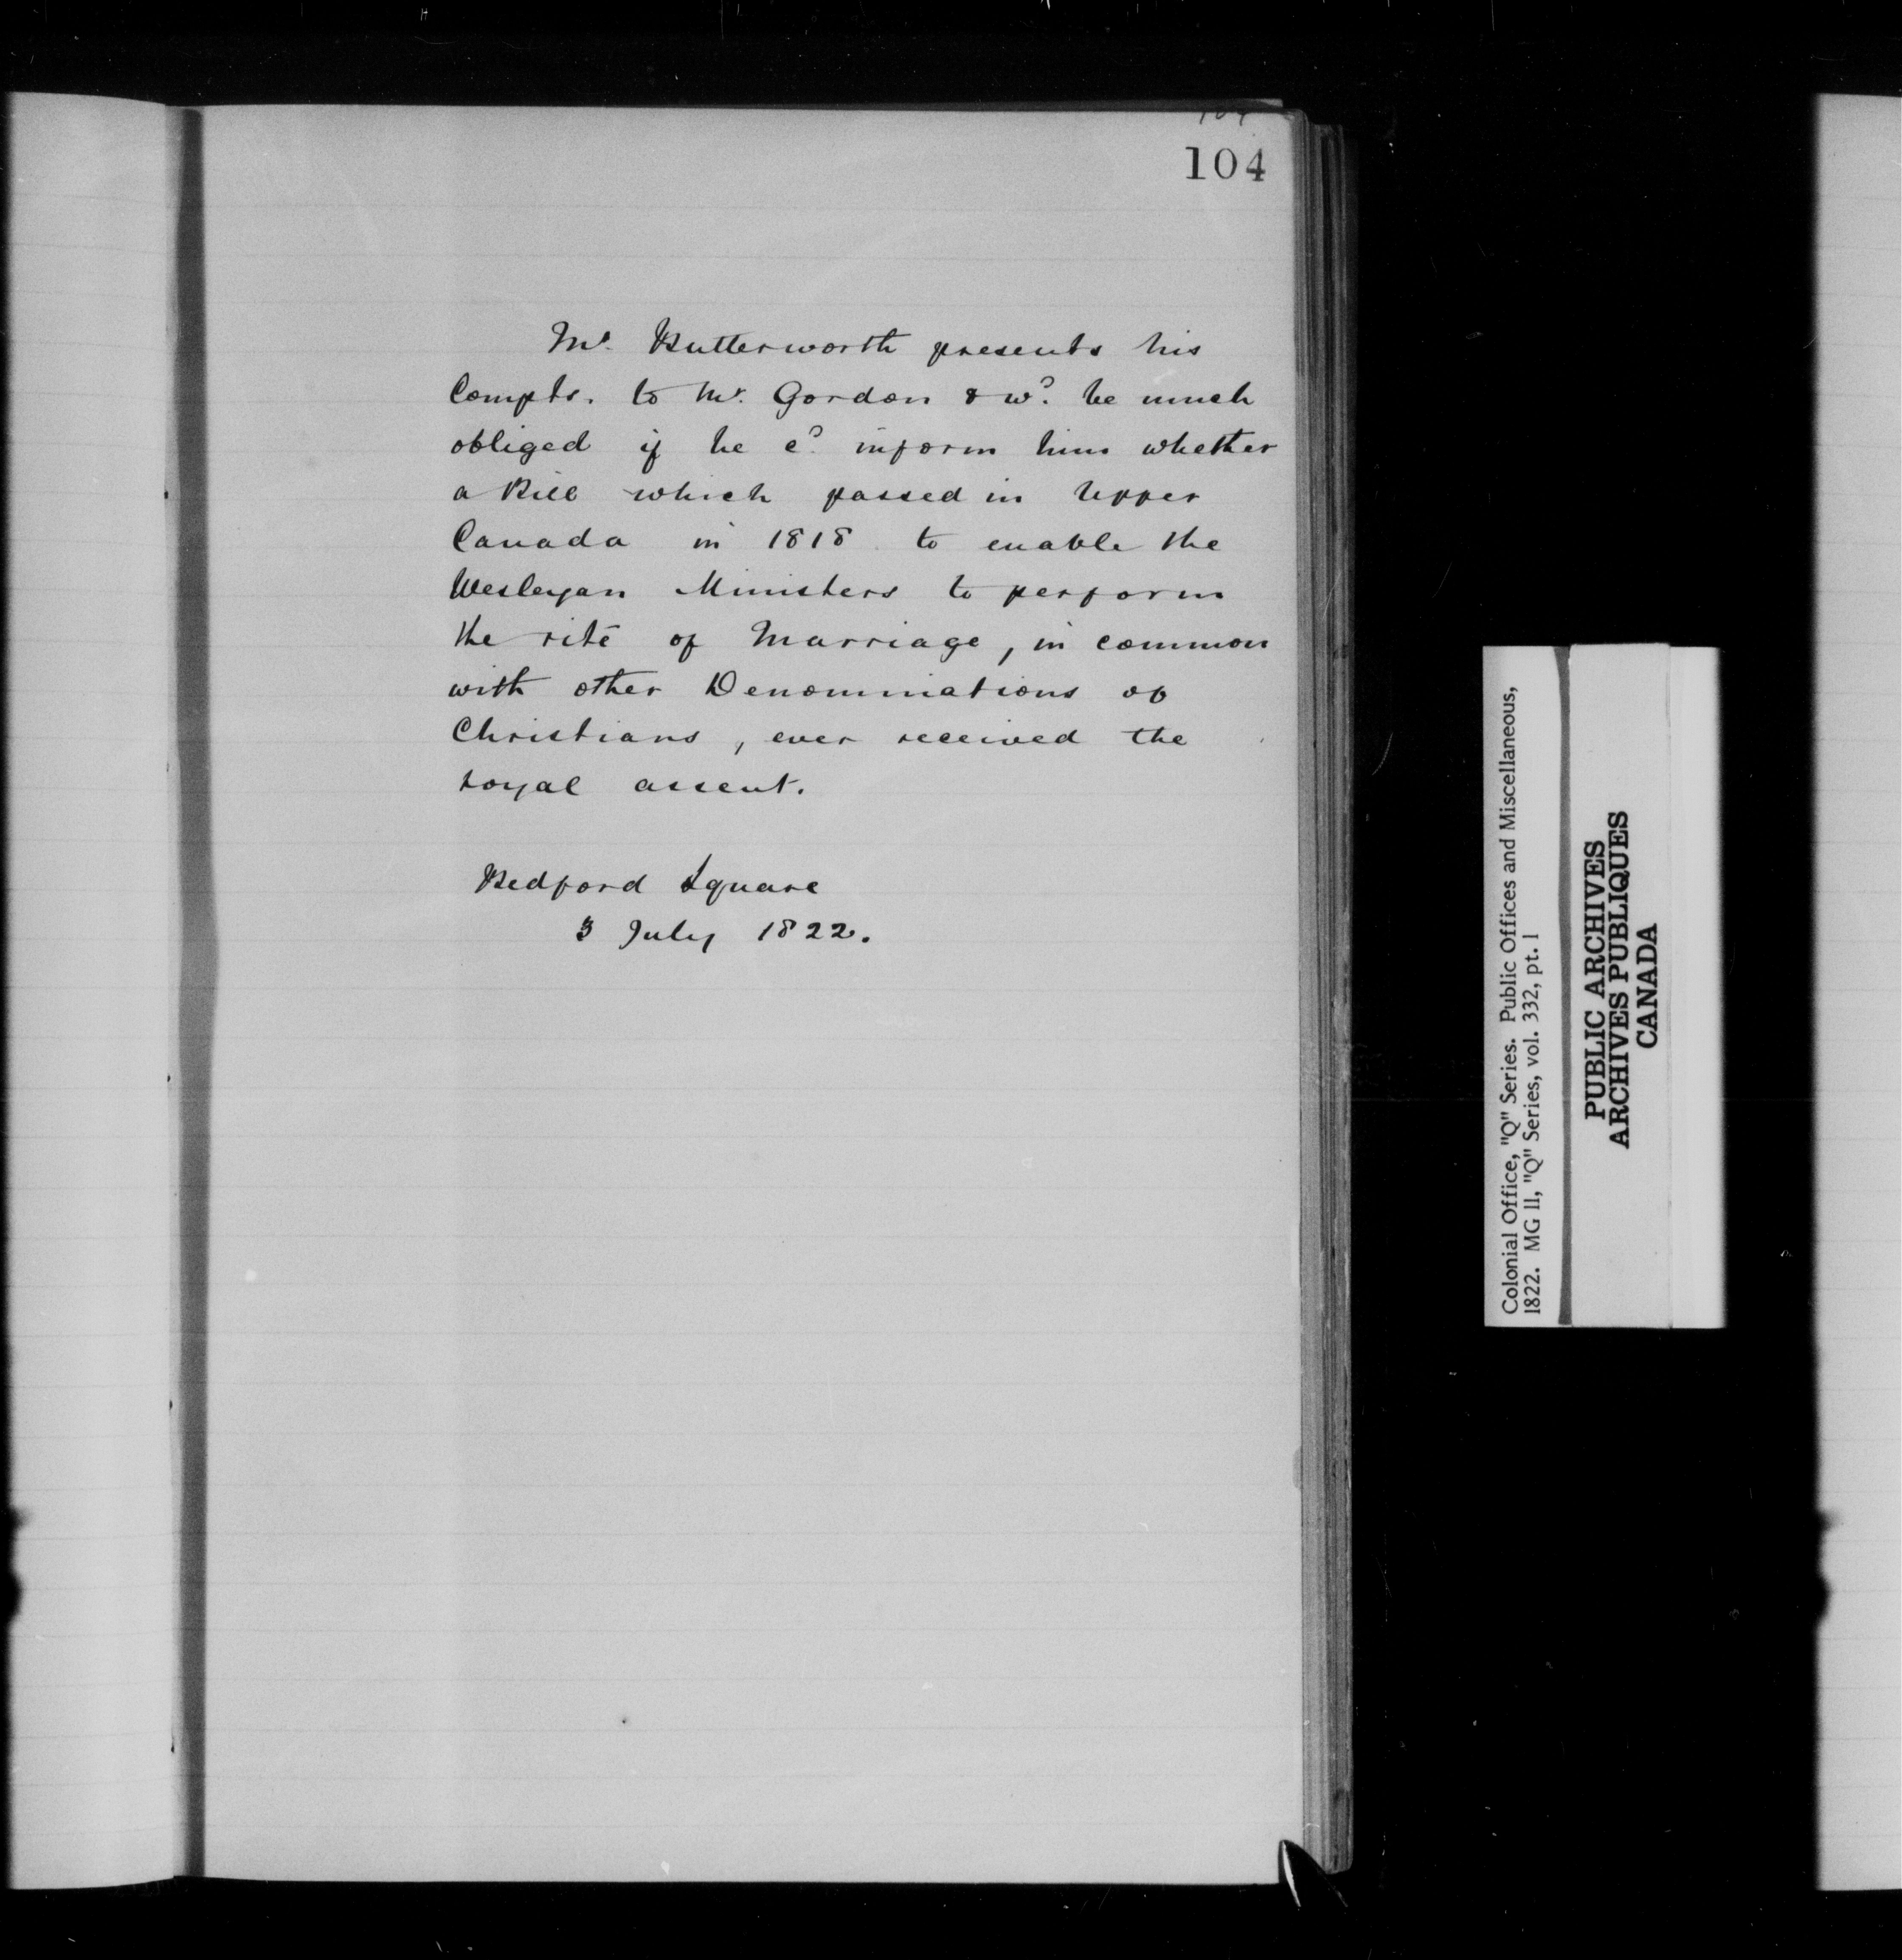 104
Mr. Butterworth presents his
Compts. to Mr. Gordon & wd. be much
obliged if he cd. inform him whether
a Bill which passed in Upper
Canada in 1818 to enable the
Wesleyan Ministers to perform
the rite of Marriage, in common
with other Denominations of
Christians, ever received the
royal assent.
Bedford Square
3 July 1822.
Colonial Office, "Q" Series. Public Offices and Miscellaneous,
1822. MG 11, "Q" Series, vol. 332, pt. 1
PUBLIC ARCHIVES
ARCHIVES PUBLIQUES
CANADA